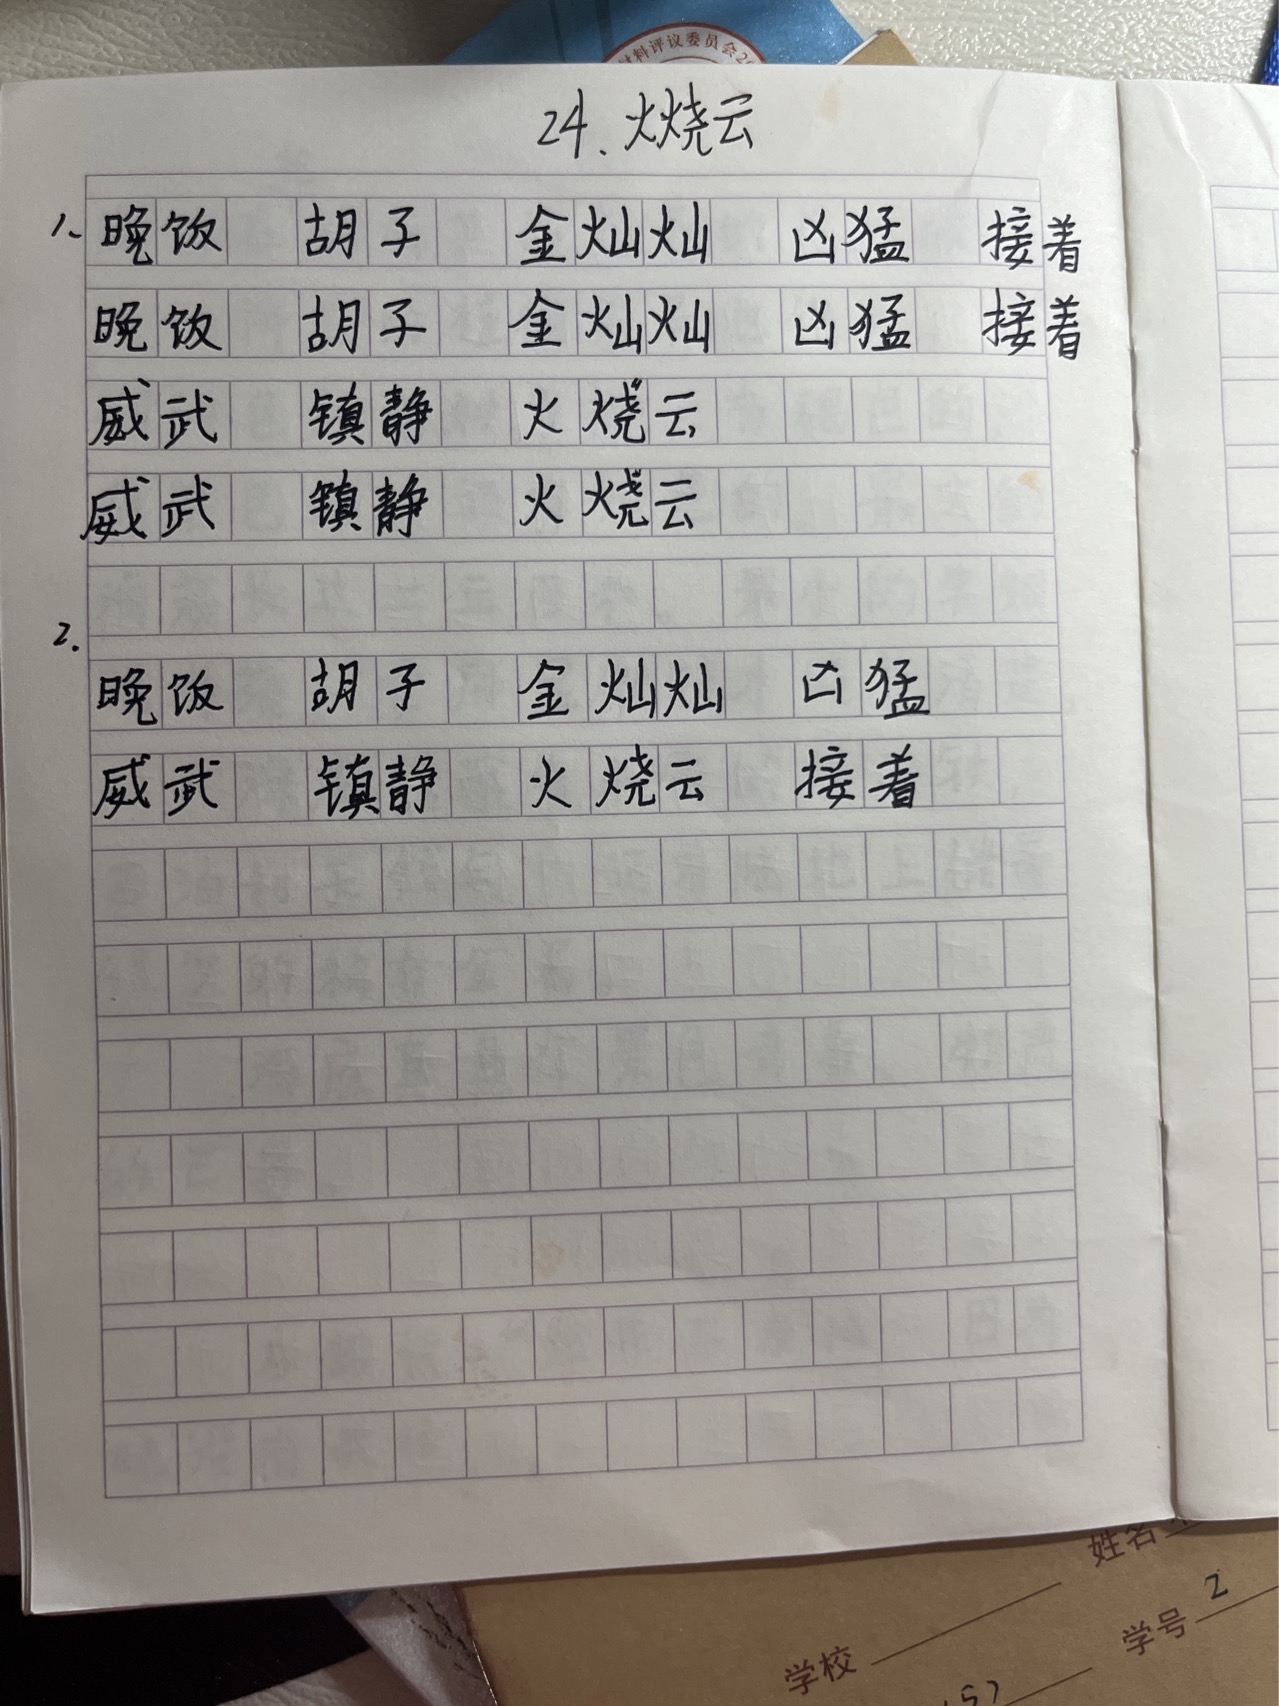 材料评议委员会2
24.火烧云
1、晚饭 胡子 金灿灿 凶猛 接着
晚饭 胡子 金灿灿 凶猛 接着
威武 镇静 火烧云
威武 镇静 火烧云
2.
晚饭 胡子 金灿灿 凶猛
威武 镇静 火烧云 接着
姓名
学校 学号 2
(5)